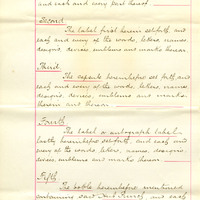 and each and every part thereof
Second
The label first herein setforth, and
each and every of the words, letters, names,
designs, devices, emblems and marks thereon.
Third.
The capsule hereinbefore set forth and
each and every of the words, letters, names,
designs, devices, emblems and marks
therein and thereon
Fourth
The autograph label,
lastly hereinbefore setforth, and each and
every of the words, letters, names, designs,
devices, emblems and marks thereon
Fifth.
The bottle hereinbefore mentioned
containing said and each